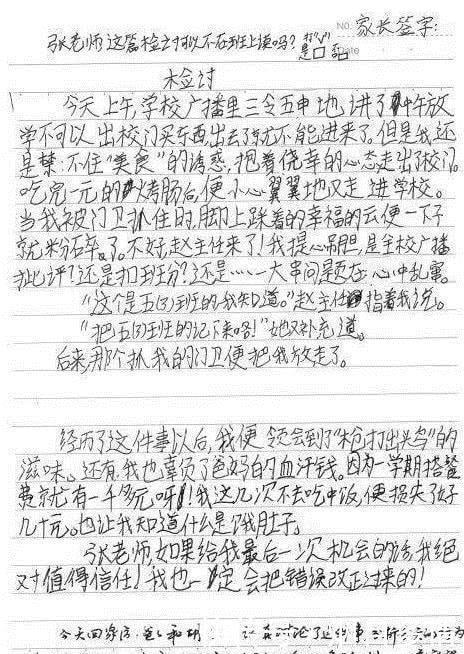 NO. 家长签字:
张老师这篇检讨可以不在班上读吗? 打"√"
是□ 否□
Date
检讨
今天上午,学校广播里三令五申地讲了中午放
学不可以出校门买东西,出去了就不能进来了。但是我还
是禁不住"美食"的诱惑,抱着侥幸的心态走出了校门。
吃完一元的烤肠后,便小心翼翼地又走进学校。
当我被门卫抓住时,脚上踩着的幸福的云便一下子
就粉碎了。不好,赵主任来了!我提心吊胆,是全校广播
批评?还是扣班分?还是……一大串问题在心中乱窜。
"这个是五(3)班的,我知道。"赵主任指着我说。
"把五(3)班的记下来咯!"她又补充道。
后来,那个抓我的门卫便把我放走了。
经历了这件事以后,我便领会到了"枪打出头鸟"的
滋味。还有,我也辜负了爸妈的血汗钱。因为一学期搭餐
费就有一千多元呀!我这几次不去吃中饭,便损失了好
几十元。也让我知道什么是饿肚子。
张老师,如果给我最后一次机会的话,我绝
对值得信任!我也一定会把错误改正过来的!
今天回家后,爸爸和